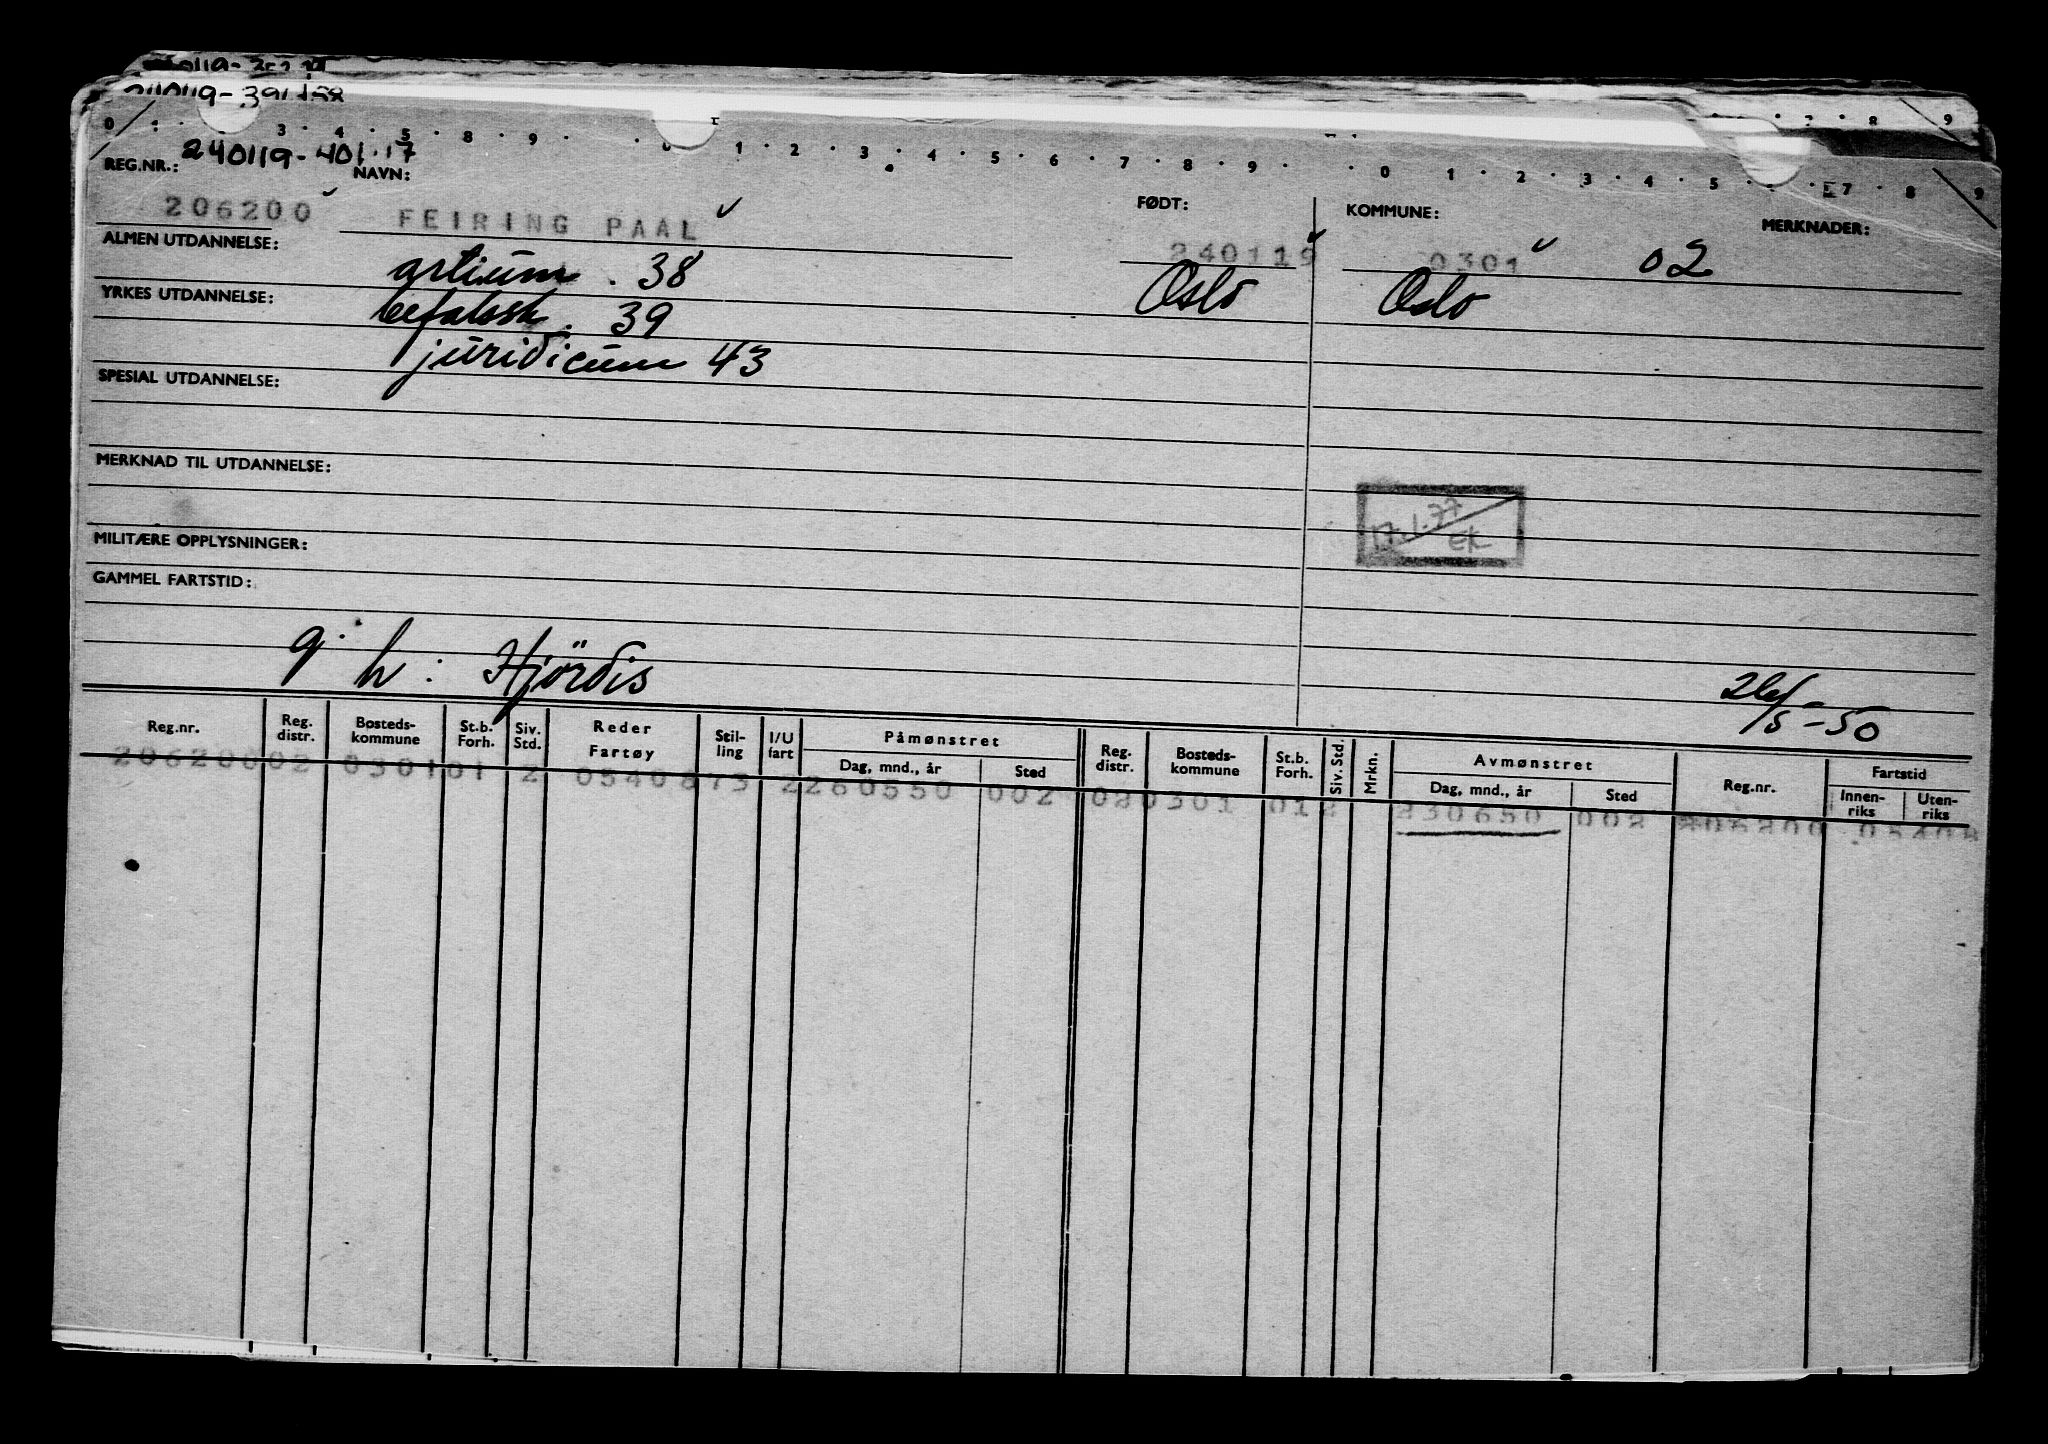 0 3 4 5 8 9 0 1 2 3 4 5 6 7 8 9 0 1 2 3 4 5 7 8 9
REG.NR.: 240119-401.17 NAVN:
206200 FEIRING PAAL FØDT: 240119 KOMMUNE: 0301 02 MERKNADER:
ALMEN UTDANNELSE: artium. 38 Oslo Oslo
YRKES UTDANNELSE: befalssk. 39
juridicum 43
SPESIAL UTDANNELSE:
MERKNAD TIL UTDANNELSE:
17.1.77
EK
MILITÆRE OPPLYSNINGER:
GAMMEL FARTSTID:
g. h: Hjördis 26/5-50
Reg.nr. Reg. distr. Bosteds-kommune St.b. Forh. Siv. Std. Reder Fartøy Stil-ling I/U fart Påmønstret Dag, mnd., år Sted Reg. distr. Bosteds-kommune St.b. Forh. Siv. Std. Mrkn. Avmønstret Dag, mnd., år Sted Reg.nr. Fartstid Innen-riks Uten-riks
20620002 030101 2 0540873 2260550 002 020301 012 230650 002 206200